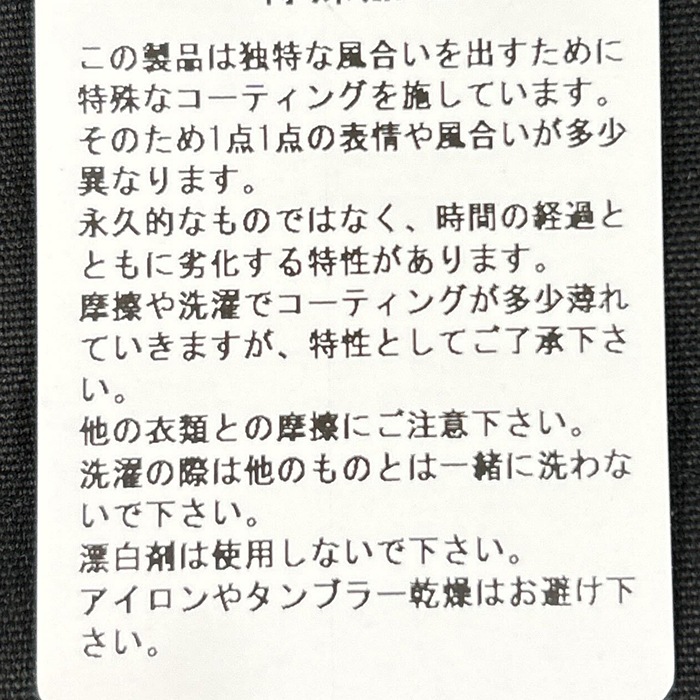 この製品は独特な風合いを出すために
特殊なコーティングを施しています。
そのため1点1点の表情や風合いが多少
異なります。
永久的なものではなく、時間の経過と
ともに劣化する特性があります。
摩擦や洗濯でコーティングが多少薄れ
ていきますが、特性としてご了承下さ
い。
他の衣類との摩擦にご注意下さい。
洗濯の際は他のものとは一緒に洗わな
いで下さい。
漂白剤は使用しないで下さい。
アイロンやタンブラー乾燥はお避け下
さい。